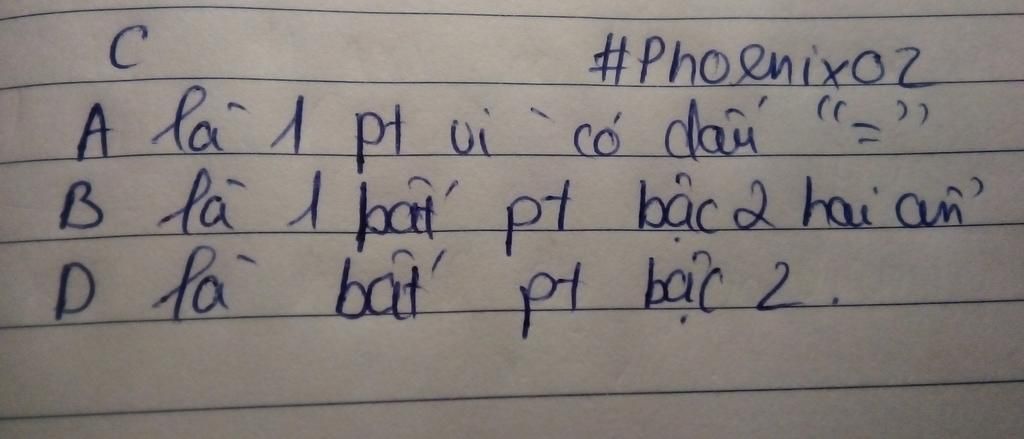 C #Phoenix02
A là 1 pt vì có dấu "="
B là 1 bất pt bậc 2 hai ẩn
D là bất pt bậc 2.